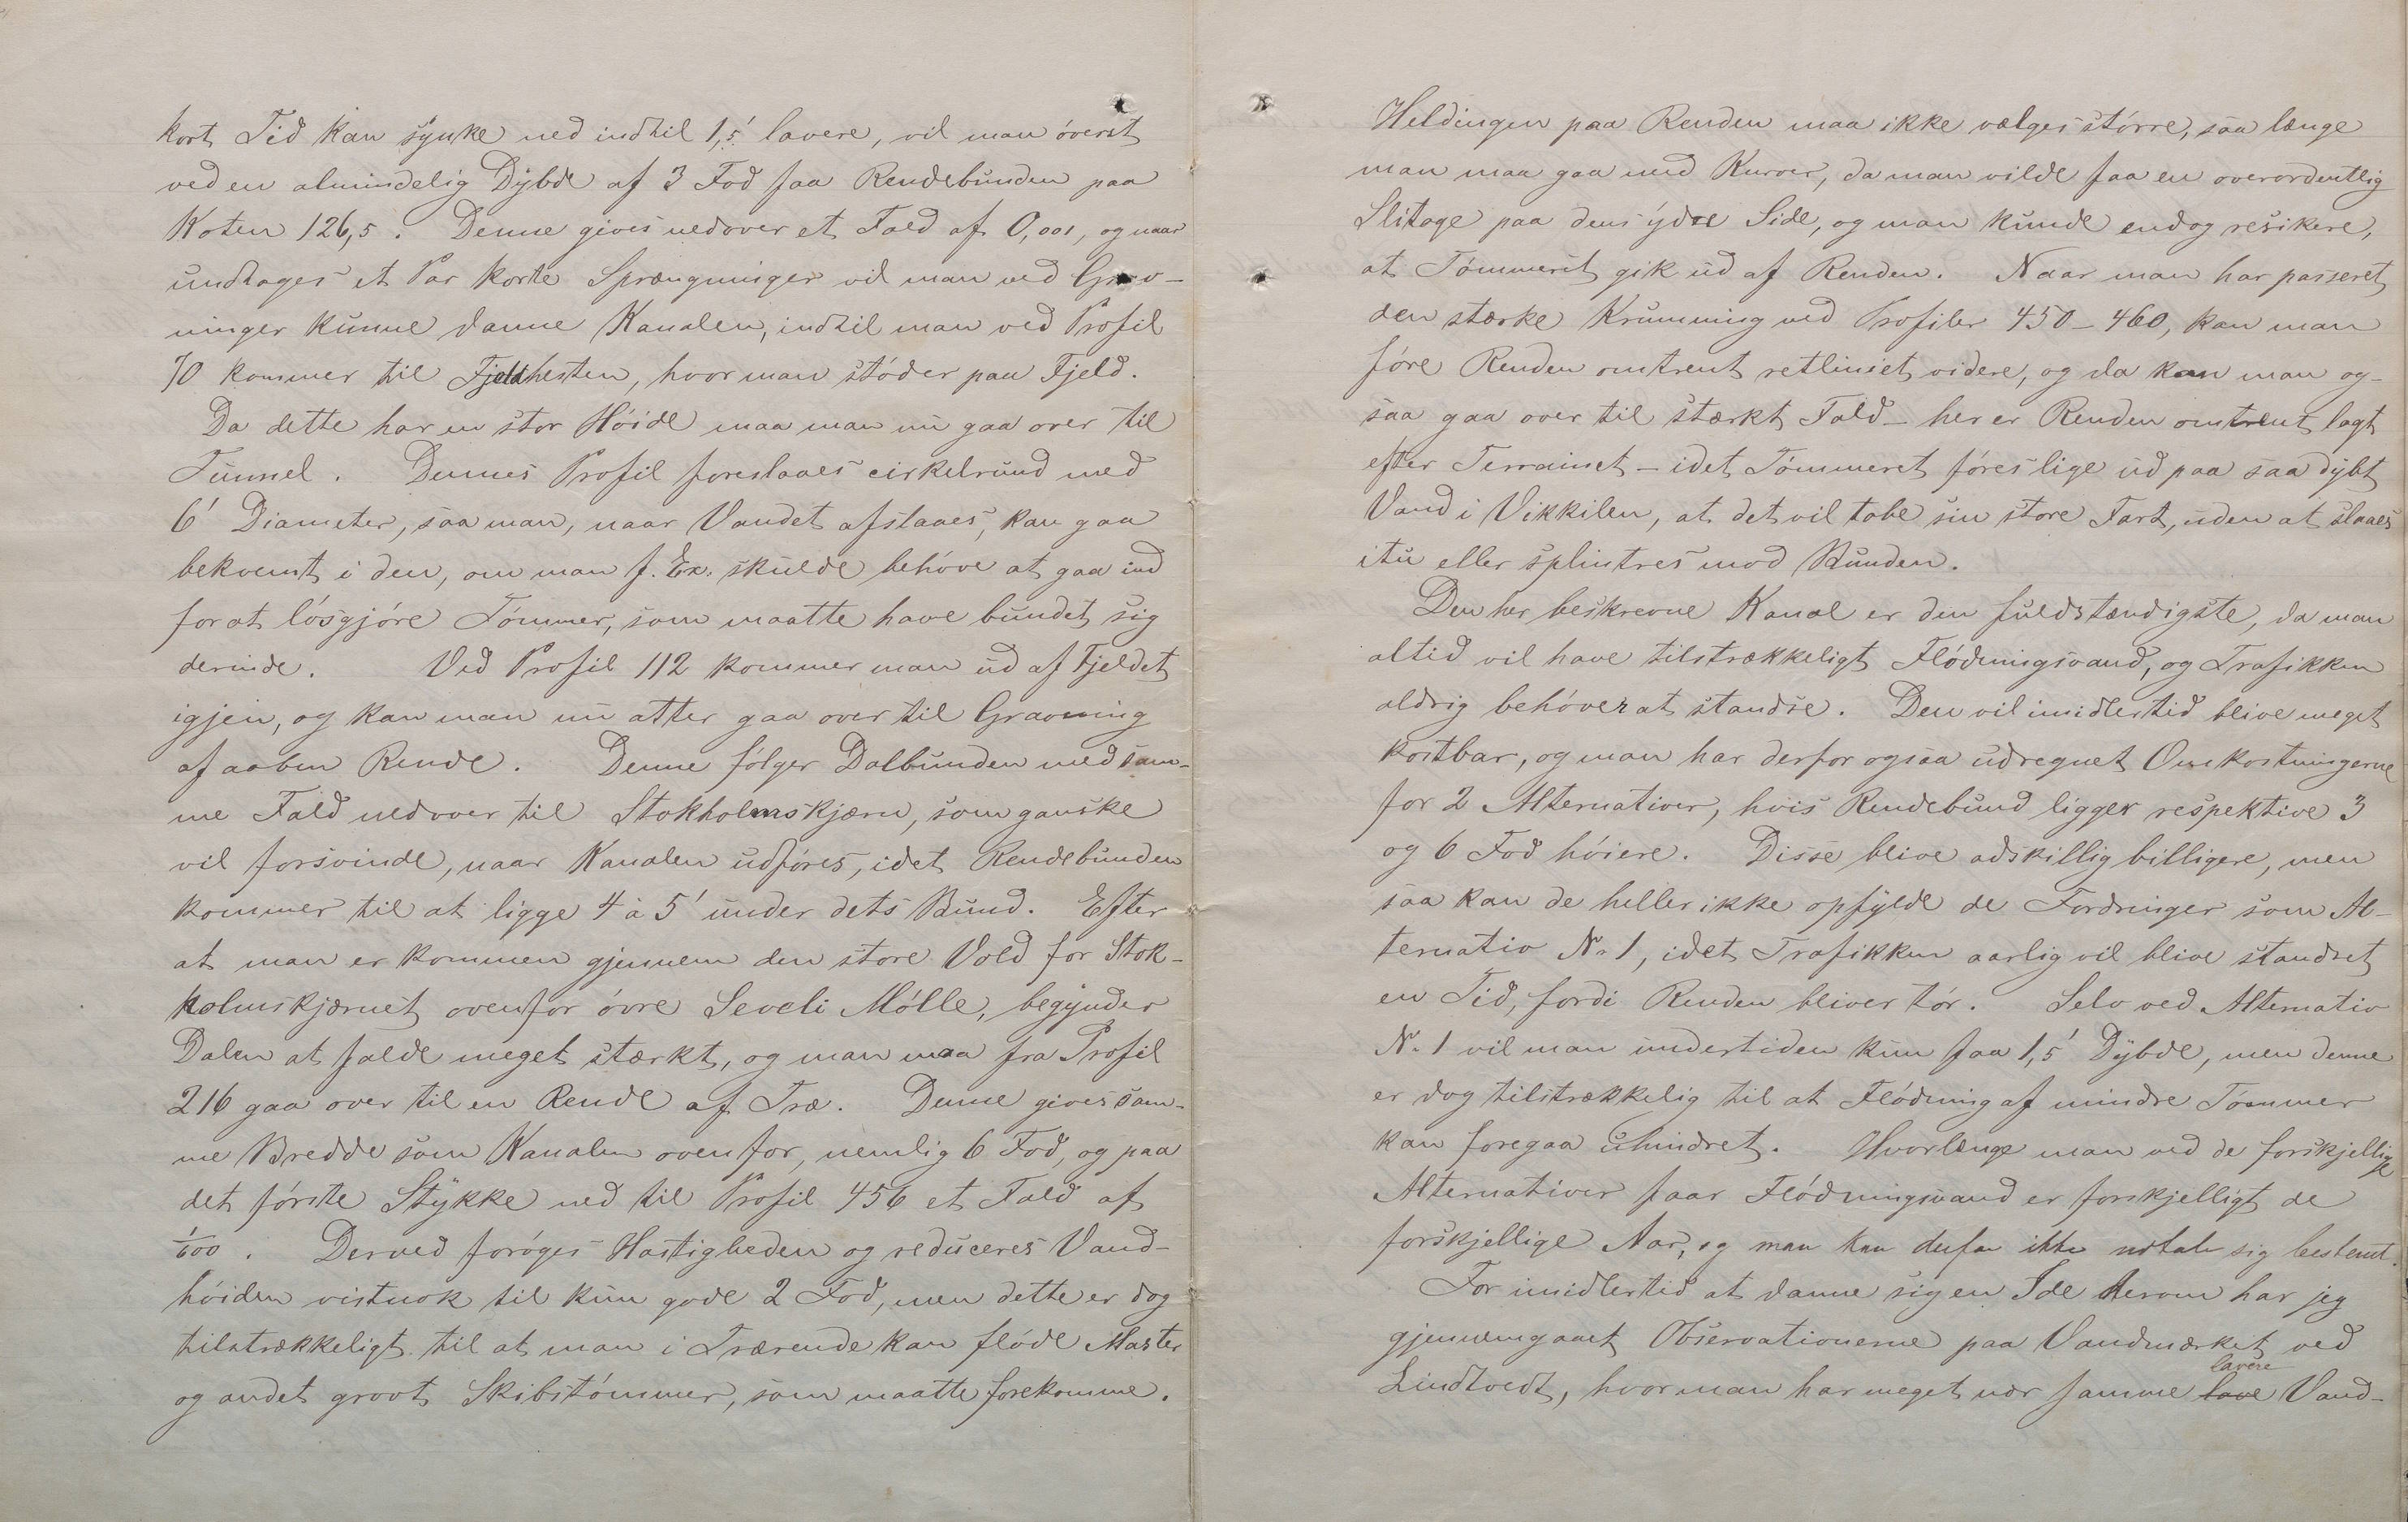 kort Tid kan synke ned indtil 1,5' lavere, vil man óverst
ved en almindelig Dybde af 3 Fod faa Rendebunden paa
Koten 126,5. Denne gives nedover et Fald af 0,001, og naar
undtages et Par korte Sprængninger vil man ved Grav-
ninger kunne danne Kanalen, indtil man ved Profil
70 kommer til Fjeldhesten, hvor man stóder paa Fjeld.
Da dette har en stor Hóide maa man nu gaa over til
Tunnel. Dennes Profil foreslaaes cirkelrund med
6' Diameter, saa man, naar Vandet afslaaes, kan gaa
bekvemt i den, om man f. Ex. skulde behóve at gaa ind
for at lósgjóre Tómmer, som maatte have bundet sig
derinde. Ved Profil 112 kommer man ud af Fjeldet
igjen, og kan man nu atter gaa over til Gravning
af aaben Rende. Denne fólger Dalbunden med sam-
me Fald nedover til Stokholmskjærn, som ganske
vil forsvinde, naar Kanalen udfóres, idet Rendebunden
kommer til at ligge 4 à 5' under dets Bund. Efter
at man er kommen gjennem den store Vold for Stok-
holmskjærnet ovenfor óvre Seveli Mólle, begynder
Dalen at falde meget stærkt, og man maa fra Profil
216 gaa over til en Rende af Træ. Denne gives sam-
me Bredde som Kanalen ovenfor, nemlig 6 Fod, og paa
det fórste Stykke ned til Profil 456 et Fald af
1/600. Derved foróges Hastigheden og reduceres Vand-
hóiden vistnok til kun gode 2 Fod, men dette er dog
tilstrækkeligt til at man i Trærende kan flóde Master
og andet grovt Skibstómmer, som maatte forekomme.
Heldingen paa Renden maa ikke vælges stórre, saa længe
man maa gaa med Kurver, da man vilde faa en overordentlig
Slitage paa dens ydre Side, og man kunde endog resikere,
at Tómmeret gik ud af Renden. Naar man har passeret
den stærke Krumning ved Profiler 450-460, kan man
fóre Renden omtrent retliniet videre, og da kan man og-
saa gaa over til stærkt Fald - her er Renden omtrent lagt
efter Terrainet - idet Tómmeret fóres lige ud paa saa dybt
Vand i Vikkilen, at det vil tabe sin store Fart, uden at slaaes
itu eller splintres mod Bunden.
Den her beskrevne Kanal er den fuldstændigste, da man
altid vil have tilstrækkeligt Flódningsvand, og Trafikken
aldrig behóver at standse. Den vil imidlertid blive meget
kostbar, og man har derfor ogsaa udregnet Omkostningerne
for 2 Alternativer, hvis Rendebund ligger respektive 3
og 6 Fod hóiere. Disse blive adskillig billigere, men
saa kan de heller ikke opfylde de Fordringer som Al-
ternativ No 1, idet Trafikken aarlig vil blive standset
en Tid, fordi Renden bliver tór. Selv ved Alternativ
No 1 vil man undertiden kun faa 1,5' Dybde, men denne
er dog tilstrækkelig til at Flódning af mindre Tómmer
kan foregaa uhindret. Hvorlænge man ved de forskjellige
Alternativer faar Flódningsvand er forskjelligt de
forskjellige Aar, og man kan derfor ikke udtale sig bestemt.
For imidlertid at danne sig en Ide herom har jeg
gjennemgaaet Observationerne paa Vandmærket ved
lavere
Lindtvedt, hvor man har meget nær samme lave Vand-